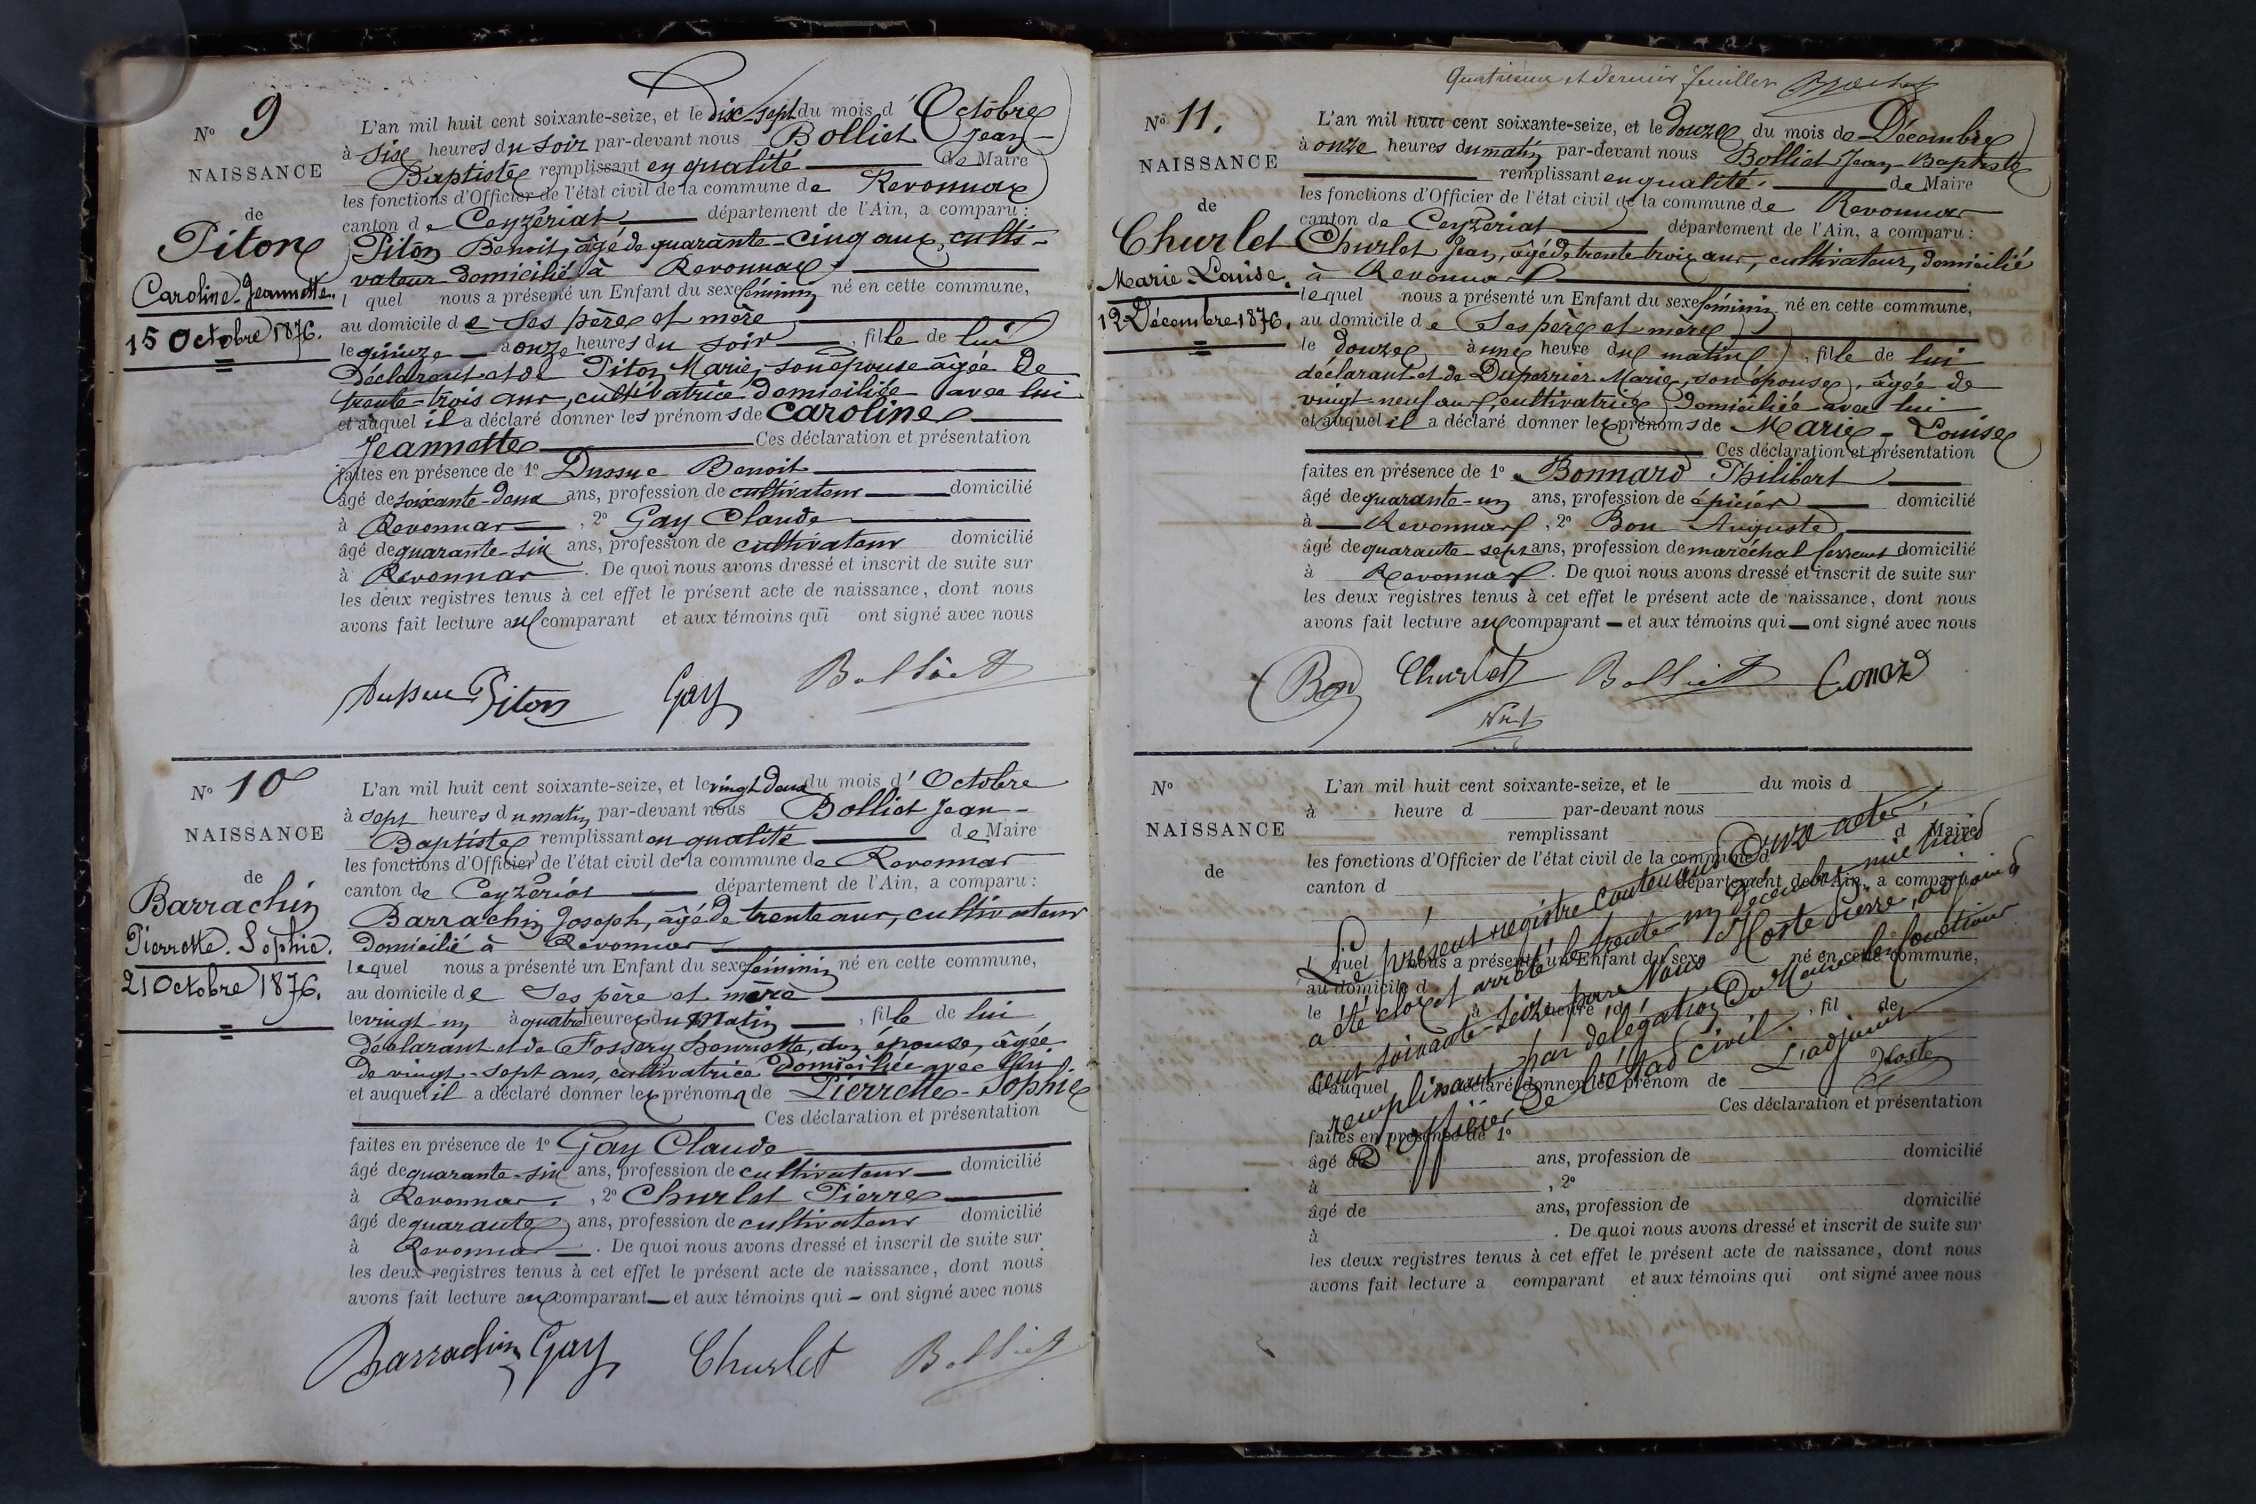 N° 9
NAISSANCE
de
Piton
Caroline-Jeannette.
15 Octobre 1876.
L'an mil huit cent soixante-seize, et le dix-sept du mois d'Octobre
à six heures du soir par-devant nous Bolliet Jean-
Baptiste remplissant en qualité de Maire
les fonctions d'Officier de l'état civil de la commune de Revonnas
canton de Ceyzériat département de l'Ain, a comparu :
Piton Benoit, âgé de quarante-cinq ans, culti-
vateur domicilié à Revonnas
l quel nous a présenté un Enfant du sexe féminin né en cette commune,
au domicile de Ses père et mère
le quinze à onze heures du soir , fille de lui
déclarant et de Piton Marie, son épouse âgée de
trente-trois ans, cultivatrice domiciliée avec lui
et auquel il a déclaré donner les prénoms de Caroline
Jeannette Ces déclaration et présentation
faites en présence de 1° Dussuc Benoit
âgé de soixante-deux ans, profession de cultivateur domicilié
à Revonnas , 2° Gay Claude
âgé de quarante-six ans, profession de cultivateur domicilié
à Revonnas . De quoi nous avons dressé et inscrit de suite sur
les deux registres tenus à cet effet le présent acte de naissance, dont nous
avons fait lecture au comparant et aux témoins qui ont signé avec nous
Dussuc Piton Gay Bolliet
N° 10
NAISSANCE
de
Barrachin
Pierrette-Sophie.
21 Octobre 1876.
L'an mil huit cent soixante-seize, et le vingt deux du mois d'Octobre
à sept heures du matin par-devant nous Bolliet Jean-
Baptiste remplissant en qualité de Maire
les fonctions d'Officier de l'état civil de la commune de Revonnas
canton de Ceyzériat département de l'Ain, a comparu :
Barrachin Joseph, âgé de trente ans, cultivateur
domicilié à Revonnas
lequel nous a présenté un Enfant du sexe féminin né en cette commune,
au domicile de Ses père et mère
le vingt-un à quatre heures du Matin , fille de lui
déclarant et de Fossery henriette, son épouse, âgée
de vingt-sept ans, cultivatrice domiciliée avec lui
et auquel il a déclaré donner les prénoms de Pierrette-Sophie
Ces déclaration et présentation
faites en présence de 1° Gay Claude
âgé de quarante-six ans, profession de cultivateur domicilié
à Revonnas. , 2° Churlet Pierre
âgé de quarante ans, profession de cultivateur domicilié
à Revonnas . De quoi nous avons dressé et inscrit de suite sur
les deux registres tenus à cet effet le présent acte de naissance, dont nous
avons fait lecture au comparant et aux témoins qui ont signé avec nous
Barrachin Gay Churlet Bolliet
Quatrième et dernier feuillet
N° 11.
NAISSANCE
de
Churlet
Marie-Louise.
12 Décembre 1876.
L'an mil huit cent soixante-seize, et le douze du mois de Décembre
à onze heures du matin par-devant nous Bolliet Jean-Baptiste
remplissant en qualité. de Maire
les fonctions d'Officier de l'état civil de la commune de Revonnas
canton de Ceyzériat département de l'Ain, a comparu :
Churlet Jean, âgé de trente trois ans, cultivateur, domicilié
à Revonnas
lequel nous a présenté un Enfant du sexe féminin né en cette commune,
au domicile de Ses père et mère
le douze à une heure du matin , fille de lui
déclarant et de Duperrier Marie, son épouse, âgée de
vingt neuf ans, cultivatrice domiciliée avec lui
et auquel il a déclaré donner les prénoms de Marie-Louise
Ces déclaration et présentation
faites en présence de 1° Bonnard Philibert
âgé de quarante-un ans, profession de épicier domicilié
à Revonnas , 2° Bon Auguste
âgé de quarante-sept ans, profession de maréchal ferrant domicilié
à Revonnas . De quoi nous avons dressé et inscrit de suite sur
les deux registres tenus à cet effet le présent acte de naissance, dont nous
avons fait lecture au comparant et aux témoins qui ont signé avec nous
Bon Churlet Bolliet Bonard
N°
NAISSANCE
de
L'an mil huit cent soixante-seize, et le du mois d
à heure d par-devant nous
remplissant d Maire
les fonctions d'Officier de l'état civil de la commune d
canton d département de l'Ain, a comparu :
Le présent registre contenant Onze actes,
a été clos et arrêté le trente-un Décembre mil huit
cent soixante-seize par Nous Hoste Pierre, adjoint
remplissant par délégation du Maire les fonctions
d'officier de l'état civil. L'adjoint
Hoste
l quel nous a présenté un Enfant du sexe né en cette commune,
au domicile d
le à heure d , fil de
et auquel déclaré donner le prénom de
Ces déclaration et présentation
faites en présence de 1°
âgé de ans, profession de domicilié
à , 2°
âgé de ans, profession de domicilié
à . De quoi nous avons dressé et inscrit de suite sur
les deux registres tenus à cet effet le présent acte de naissance, dont nous
avons fait lecture a comparant et aux témoins qui ont signé avec nous